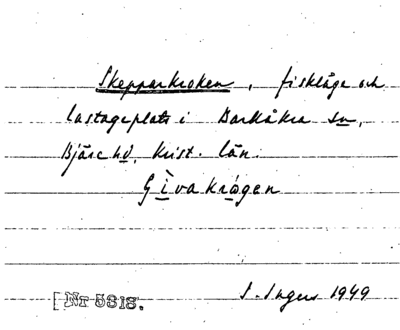 Skepparkroken, fiskläge och
lastageplats i Barkåkra sn,
Bjäre hd, Krist. län.
Gìvakrøgen
[Nr 5818.
I. Ingers 1949